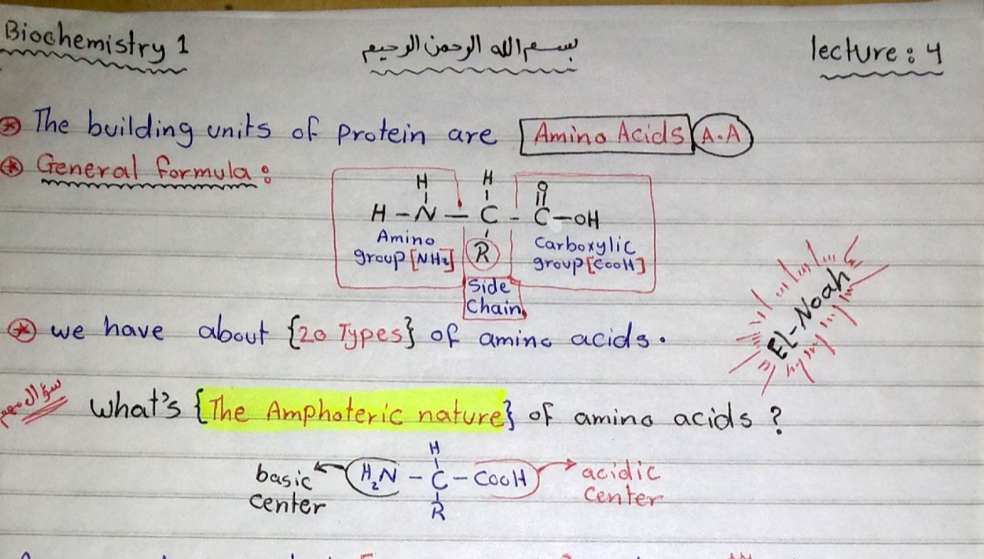 Biochemistry 1 بسم الله الرحمن الرحيم lecture : 4
The building units of protein are Amino Acids A.A
General formula :
H H O
H - N - C - C - OH
Amino group [NH2] R Carboxylic group [COOH]
Side Chain
EL-Noah
we have about {20 Types} of amino acids.
سؤال مهم What's {The Amphoteric nature} of amino acids ?
H
basic center H2N - C - COOH acidic center
R